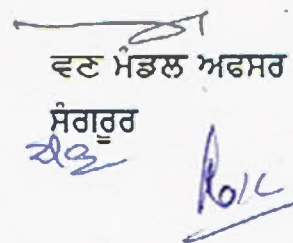 ਵਣ ਮੰਡਲ ਅਫਸਰ
ਸੰਗਰੂਰ